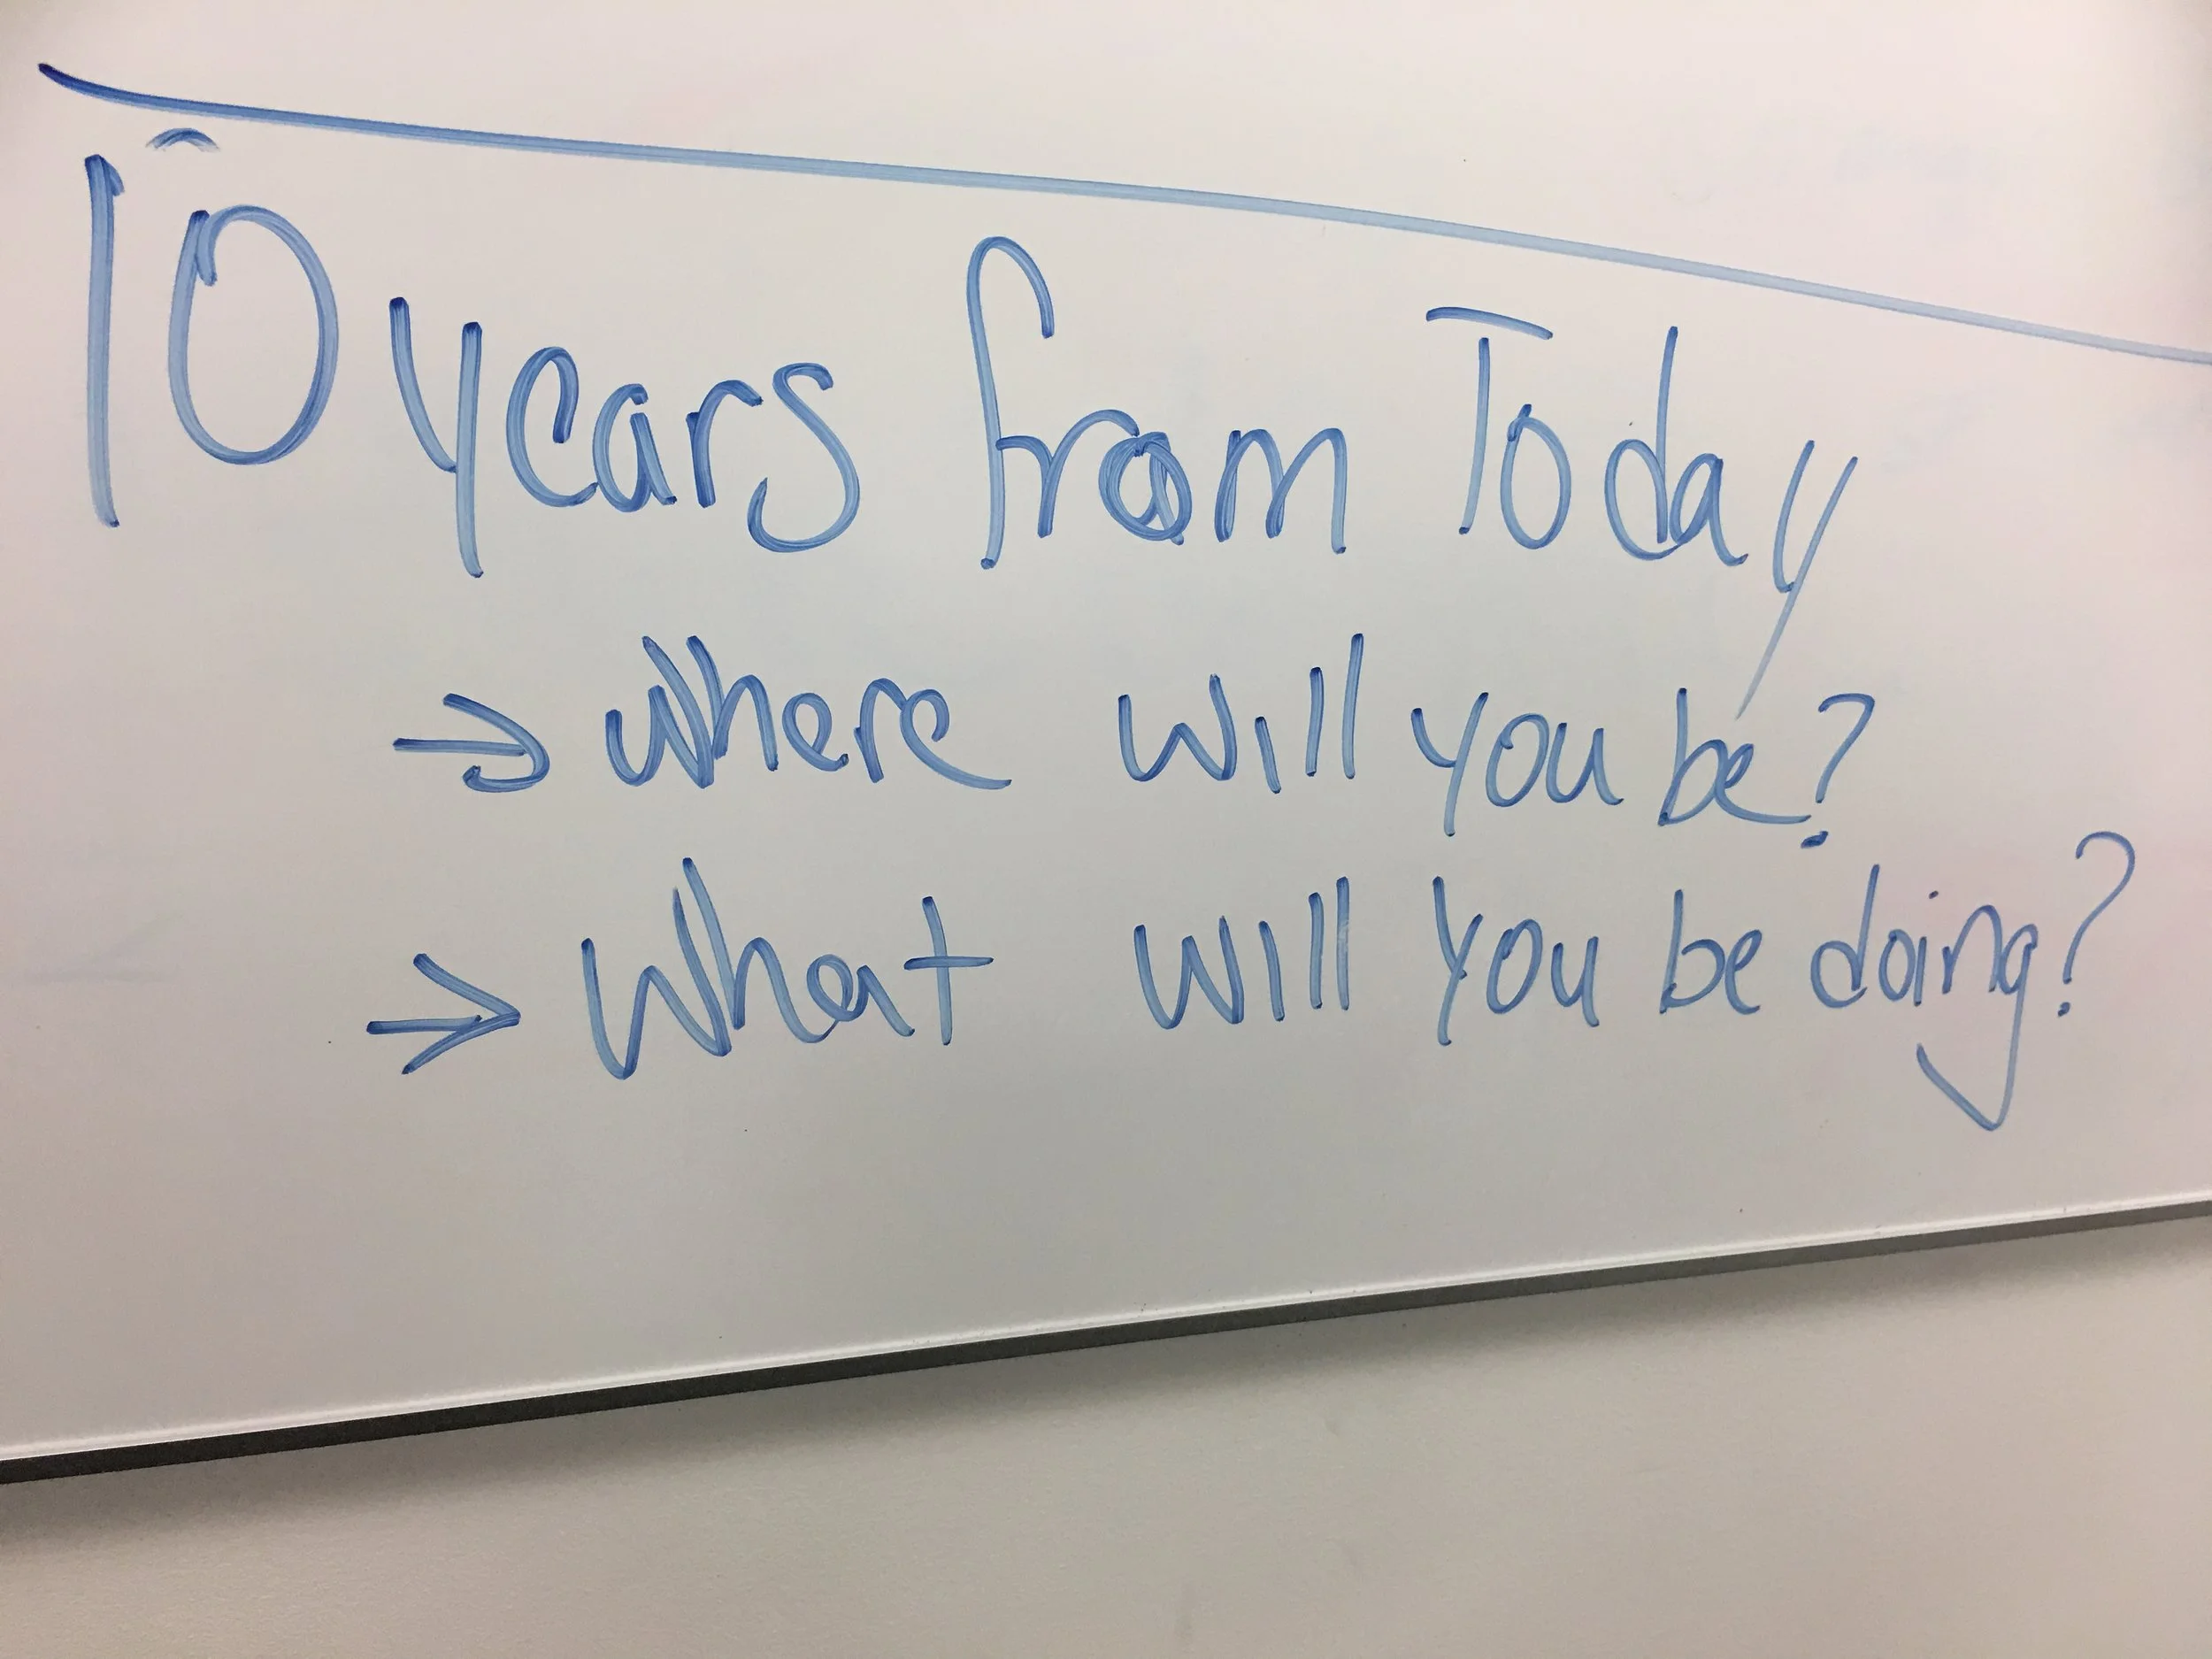 10 years from Today
→ where will you be?
→ What will you be doing?